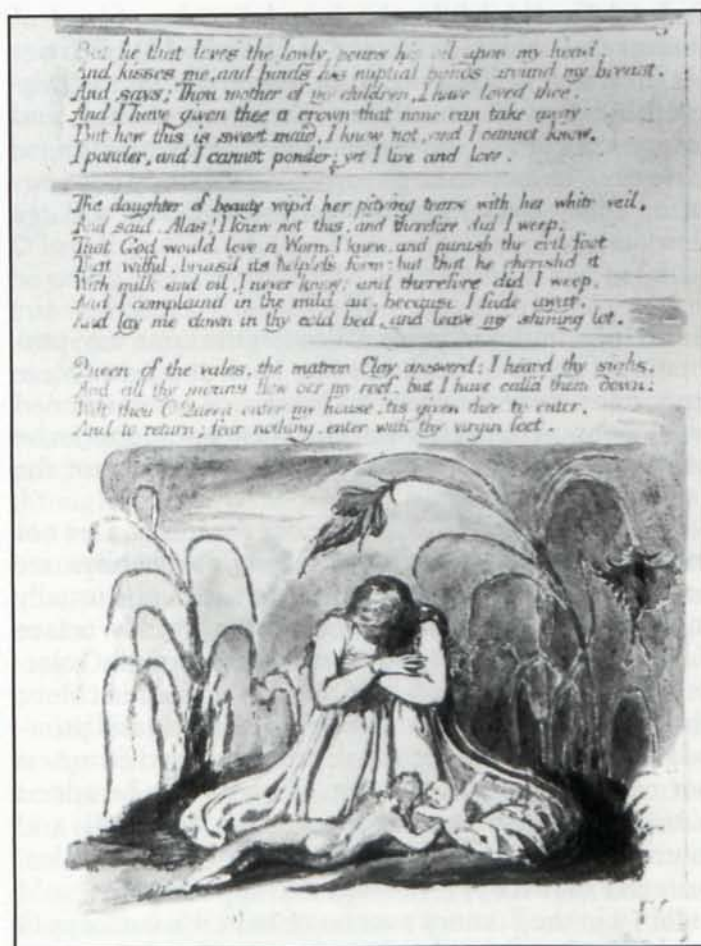 But he that loves the lowly, pours his oil upon my head,
And kisses me, and binds his nuptial bands around my breast.
And says; Thou mother of my children, I have loved thee.
And I have given thee a crown that none can take away
But how this is sweet maid, I know not, and I cannot know.
I ponder, and I cannot ponder; yet I live and love.
The daughter of beauty wip'd her pitying tears with her white veil,
And said. Alas! I knew not this, and therefore did I weep.
That God would love a Worm I knew, and punish the evil foot
That wilful, bruis'd its helpless form: but that he cherish'd it
With milk and oil, I never knew; and therefore did I weep.
And I complaind in the mild air, because I fade away.
And lay me down in thy cold bed, and leave my shining lot.
Queen of the vales, the matron Clay answerd; I heard thy sighs.
And all thy moans flew o'er my roof, but I have call'd them down:
Wilt thou O Queen enter my house, 'tis given thee to enter,
And to return; fear nothing, enter with thy virgin feet.